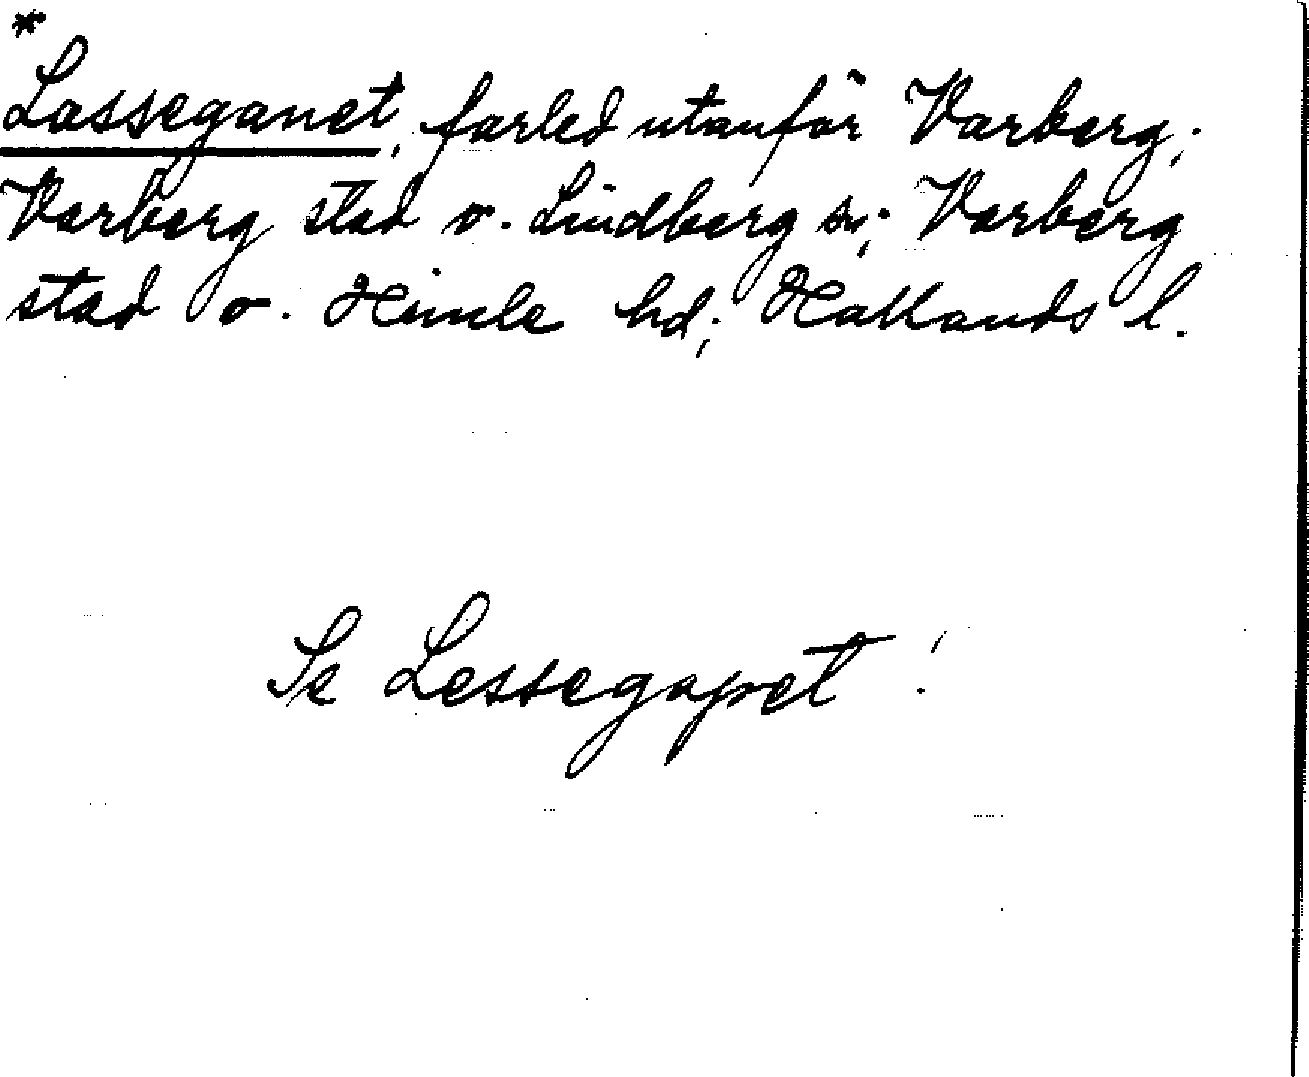 *
Lasseganet, farled utanför Varberg;
Varberg stad o. Lindberg sn; Varberg
stad o. Himle hd; Hallands l.
Se Lessegapet!